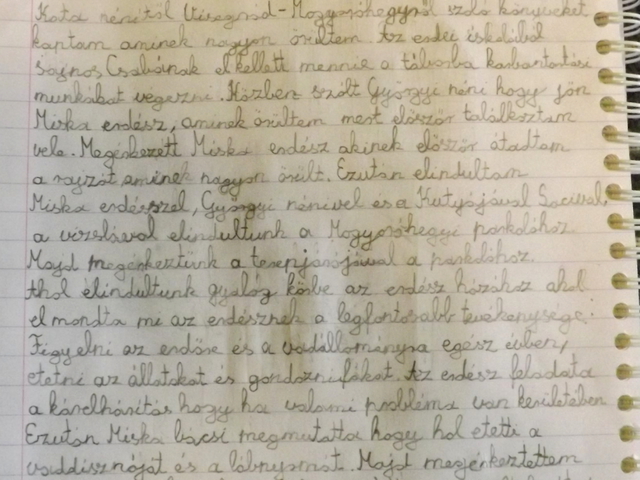 Kata nénitől Visegrád-Mogyoróhegyről szóló könyveket
kaptam aminek nagyon örültem Az erdei iskolából
sajnos Csabának el kellett mennie a táborba karbantartási
munkákat végezni. Közben szólt Györgyi néni hogy jön
Miska erdész, aminek örültem mert először találkoztam
vele. Megérkezett Miska erdész akinek először átadtam
a rajzát aminek nagyon örült. Ezután elindultam
Miska erdésszel, Györgyi nénivel és a Kutyájával
a vizslával elindultunk a Mogyoróhegyi parkolóhoz
Majd megérkeztünk a terepjárójával a parkolóhoz.
Ahol elindultunk gyalog körbe az erdész házához ahol
elmondta mi az erdésznek a legfontosabb tevékenysége.
Figyelni az erdőre és a vadállományra egész évben,
etetni az állatokat és gondozni fákat. Az erdész feladata
a kárelhárítás hogy ha valami probléma van kerületében
Ezután Miska bácsi megmutatta hogy hol etetti a
vaddisznóját és a lábnyomát. Majd megérkeztettem